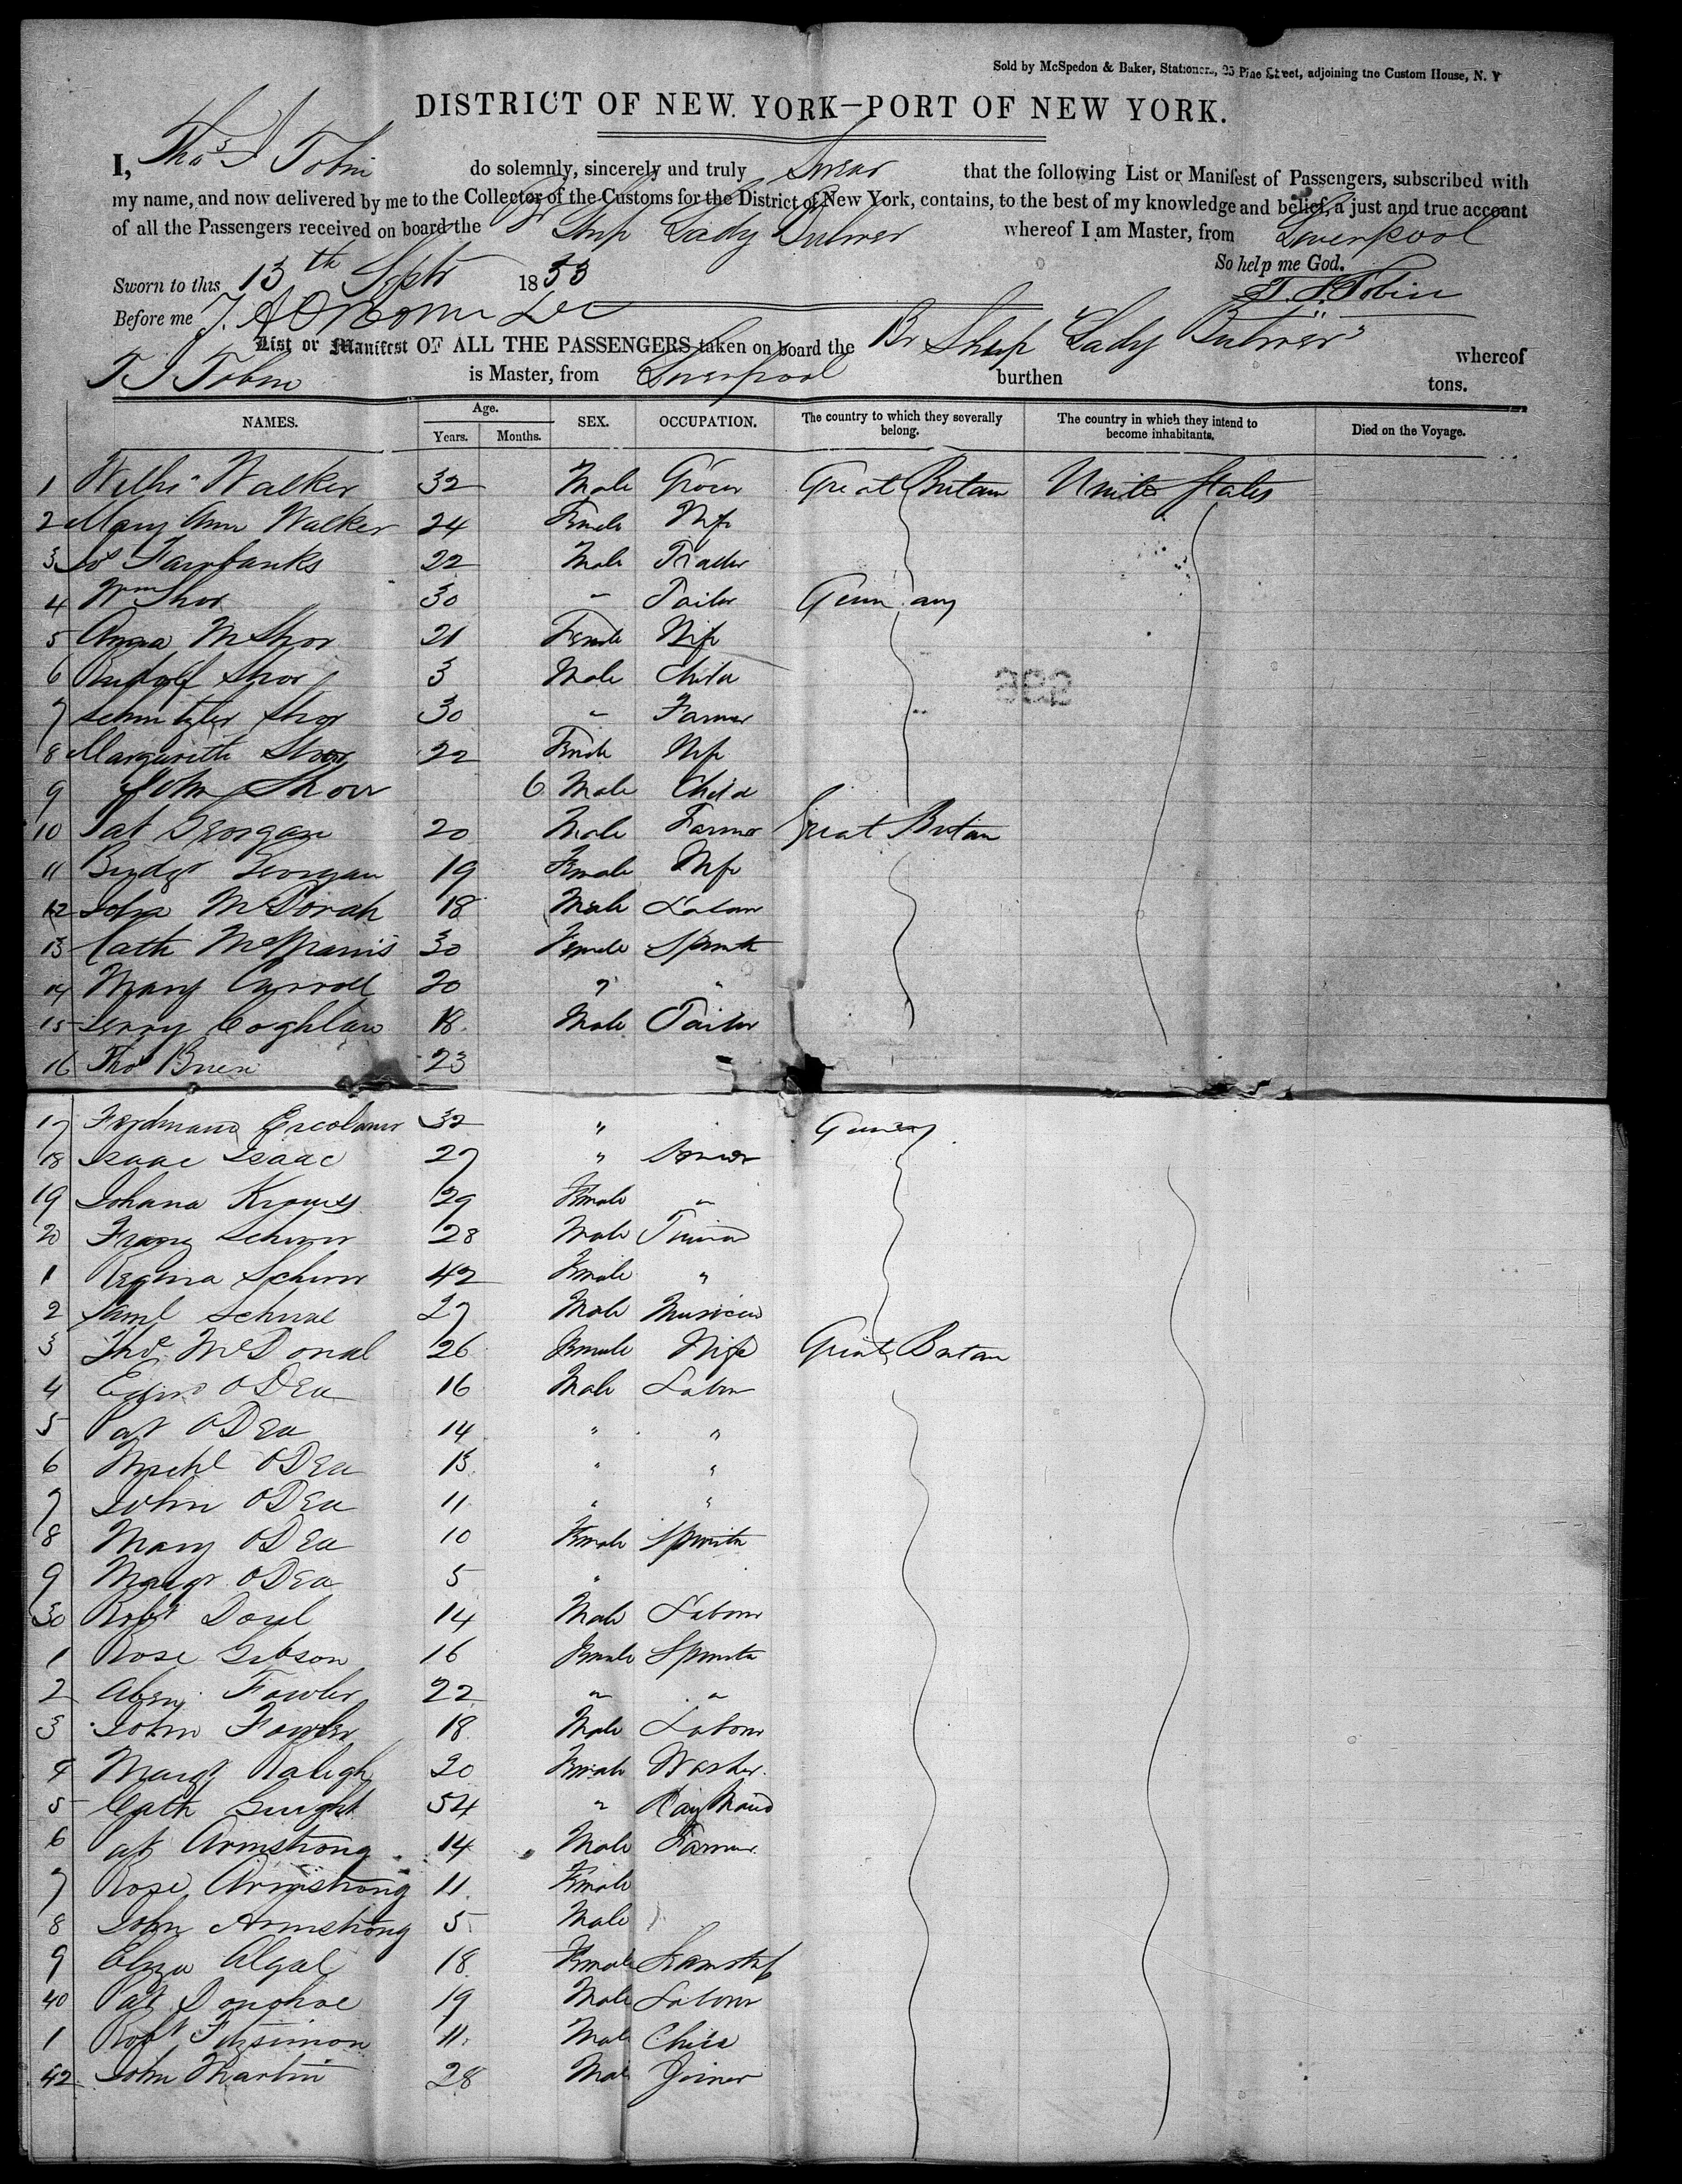 Sold by McSpedon & Baker, Stationers, 25 Pine Street, adjoining the Custom House, N. Y
DISTRICT OF NEW YORK—PORT OF NEW YORK.
I, Thos J Tobin do solemnly, sincerely and truly Swear that the following List or Manifest of Passengers, subscribed with
my name, and now delivered by me to the Collector of the Customs for the District of New York, contains, to the best of my knowledge and belief, a just and true account
of all the Passengers received on board the Br Ship Lady Bulwer whereof I am Master, from Liverpool
So help me God.
Sworn to this 13th Septr 1853 T. J. Tobin
Before me
List or Manifest OF ALL THE PASSENGERS taken on board the Br Ship "Lady Bulwer" whereof
T J Tobin is Master, from Liverpool burthen tons.
NAMES. Age. Years. Months. SEX. OCCUPATION. The country to which they severally belong. The country in which they intend to become inhabitants. Died on the Voyage.
1 Walker 32 Male Grocer Great Britain United States
2 Mary Ann Walker 24 Female Wife
3 Fairbanks 22 Male
4 Wm Shor 30 " Tailor Germany
5 Anna M Shor 21 Female Wife
6 Rudolf Shor 3 Male Child
7 Schnitzler Shor 30 " Farmer
8 Marguerith Shor 22 Female Wife
9 John Shorr 6 Male Child
10 Pat Georgan 20 Male Farmer Great Britain
11 Bridgt Georgan 19 Female Wife
12 John McDorah 18 Male Labour
13 Cath 30 Female Spinstr
14 Mary Carroll 20 " "
15 Jerry Coghlan 18 Male Tailor
16 Thos 23
17 Ferdinand 32 " Germany
18 Isaac Isaac 27 "
19 Johana 29 Female "
20 Franz 28 Male
1 Regina 42 Female "
2 Saml 27 Male Musician
3 McDonal 26 Female Wife Great Britain
4 ODea 16 Male Labour
5 Pat ODea 14 " "
6 Michl ODea 13 " "
7 John ODea 11 " "
8 Mary ODea 10 Female Spinstr
9 Margt ODea 5 "
30 Robt 14 Male Labour
1 Rose Gibson 16 Female Spinstr
2 Fowler 22 " "
3 John Fowler 18 Male Labour
4 Margt Raleigh 20 Female Washer
5 Cath 54 "
6 Pat Armstrong 14 Male Farmer
7 Rose Armstrong 11 Female
8 John Armstrong 5 Male
9 Eliza 18 Female
40 Pat Donohoe 19 Male Labour
1 Robt Fitzsimon 11 Male Child
42 John Martin 28 Male Joiner